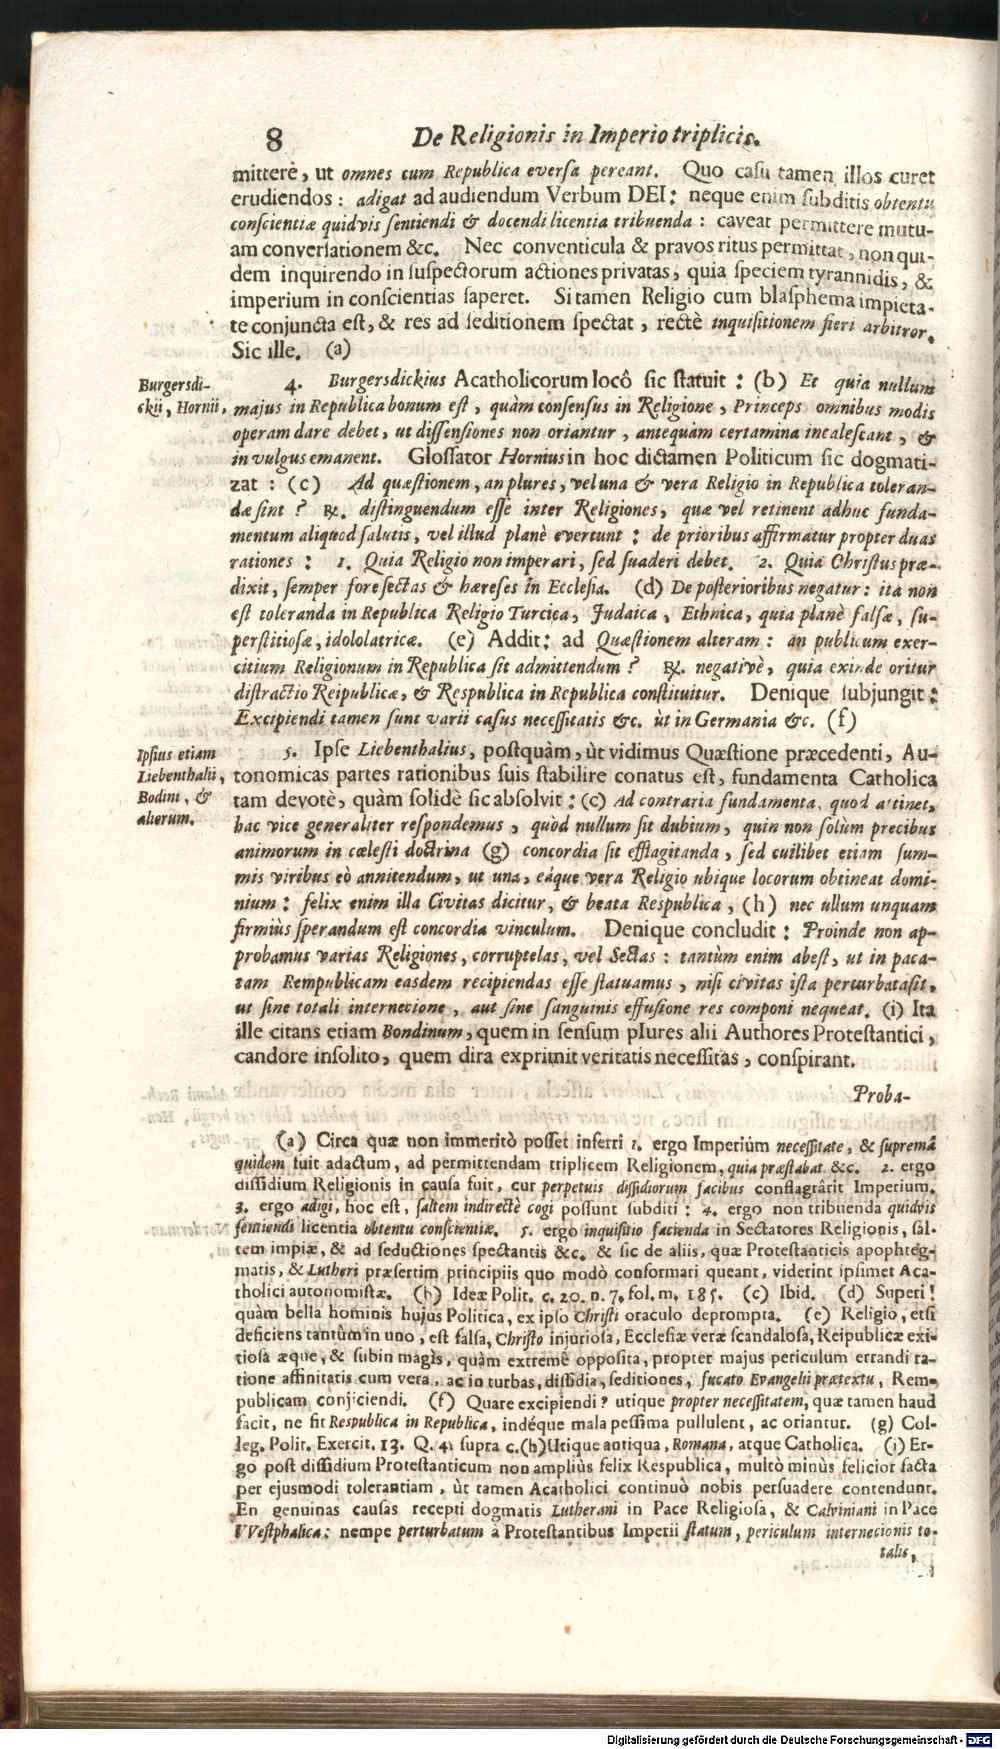 8 De Religionis in Imperio triplicis.
mitterè, ut omnes cum Republica eversa pereant. Quo casu tamen illos curet
erudiendos: adigat ad audiendum Verbum DEI: neque enim subditis obtentu
conscientiæ quidvis sentiendi & docendi licentia tribuenda: caveat permittere mutu-
am conversationem &c. Nec conventicula & pravos ritus permittat, non qui-
dem inquirendo in suspectorum actiones privatas, quia speciem tyrannidis, &
imperium in conscientias saperet. Si tamen Religio cum blasphema impieta-
te conjuncta est, & res ad seditionem spectat, rectè inquisitionem fieri arbitror.
Sic ille. (a)
Burgersdi-
ckii, Hornii,
4. Burgersdickius Acatholicorum locô sic statuit: (b) Et quia nullum
majus in Republica bonum est, quàm consensus in Religione, Princeps omnibus modis
operam dare debet, ut dissensiones non oriantur, antequàm certamina incalescant, &
in vulgus emanent. Glossator Hornius in hoc dictamen Politicum sic dogmati-
zat: (c) Ad quæstionem, an plures, vel una & vera Religio in Republica toleran-
dæ sint? ℞. distinguendum esse inter Religiones, quæ vel retinent adhuc funda-
mentum aliquod salutis, vel illud planè evertunt: de prioribus affirmatur propter duas
rationes: 1. Quia Religio non imperari, sed suaderi debet. 2. Quia Christus præ-
dixit, semper fore sectas & hæreses in Ecclesia. (d) De posterioribus negatur: ita non
est toleranda in Republica Religio Turcica, Judaica, Ethnica, quia planè falsæ, su-
perstitiosæ, idololatricæ. (e) Addit: ad Quæstionem alteram: an publicum exer-
citium Religionum in Republica sit admittendum? ℞. negativè, quia exinde oritur
distractio Reipublicæ, & Respublica in Republica constituitur. Denique subjungit:
Excipiendi tamen sunt varii casus necessitatis &c. ùt in Germania &c. (f)
Ipsius etiam
Liebenthalii,
Bodini, &
aliorum.
5. Ipse Liebenthalius, postquàm, ùt vidimus Quæstione præcedenti, Au-
tonomicas partes rationibus suis stabilire conatus est, fundamenta Catholica
tam devotè, quàm solidè sic absolvit: (c) Ad contraria fundamenta, quod attinet,
hac vice generaliter respondemus, quòd nullum sit dubium, quin non solùm precibus
animorum in cœlesti doctrina (g) concordia sit efflagitanda, sed cuilibet etiam sum-
mis viribus eò annitendum, ut una, eáque vera Religio ubique locorum obtineat domi-
nium: felix enim illa Civitas dicitur, & beata Respublica, (h) nec ullum unquam
firmiùs sperandum est concordia vinculum. Denique concludit: Proinde non ap-
probamus varias Religiones, corruptelas, vel Sectas: tantùm enim abest, ut in paca-
tam Rempublicam easdem recipiendas esse statuamus, nisi civitas ista perturbata sit,
ut sine totali internecione, aut sine sanguinis effusione res componi nequeat. (i) Ita
ille citans etiam Bondinum, quem in sensum plures alii Authores Protestantici,
candore insolito, quem dira exprimit veritatis necessitas, conspirant.
Proba-
(a) Circa quæ non immeritò posset inferri 1. ergo Imperiùm necessitate, & supremâ
quidem fuit adactum, ad permittendam triplicem Religionem, quia præstabat &c. 2. ergo
dissidium Religionis in causa fuit, cur perpetuis dissidiorum facibus conflagrârit Imperium.
3. ergo adigi, hoc est, saltem indirectè cogi possunt subditi: 4. ergo non tribuenda quidvis
sentiendi licentia obtentu conscientiæ. 5. ergo inquisitio facienda in Sectatores Religionis, sal-
tem impiæ, & ad seductiones spectantis &c. & sic de aliis, quæ Protestanticis apophteg-
matis, & Lutheri præsertim principiis quo modò conformari queant, viderint ipsimet Aca-
tholici autonomistæ. (b) Ideæ Polit. c. 20. n. 7. fol. m. 185. (c) Ibid. (d) Superi!
quàm bella hominis hujus Politica, ex ipso Christi oraculo deprompta. (e) Religio, etsi
deficiens tantùm in uno, est falsa, Christo injuriosa, Ecclesiæ veræ scandalosa, Reipublicæ exi-
tiosa æque, & subin magìs, quàm extremè opposita, propter majus periculum errandi ra-
tione affinitatis cum vera, ac in turbas, dissidia, seditiones, fucato Evangelii prætextu, Rem-
publicam conjiciendi. (f) Quare excipiendi? utique propter necessitatem, quæ tamen haud
facit, ne sit Respublica in Republica, indéque mala pessima pullulent, ac oriantur. (g) Col-
leg. Polit. Exercit. 13. Q. 4. supra c. (h) Utique antiqua, Romana, atque Catholica. (i) Er-
go post dissidium Protestanticum non ampliùs felix Respublica, multò minùs felicior facta
per ejusmodi tolerantiam, ùt tamen Acatholici continuò nobis persuadere contendunt.
En genuinas causas recepti dogmatis Lutherani in Pace Religiosa, & Calviniani in Pace
VVestphalica: nempe perturbatum à Protestantibus Imperii statum, periculum internecionis to-
talis,
Digitalisierung gefördert durch die Deutsche Forschungsgemeinschaft - DFG